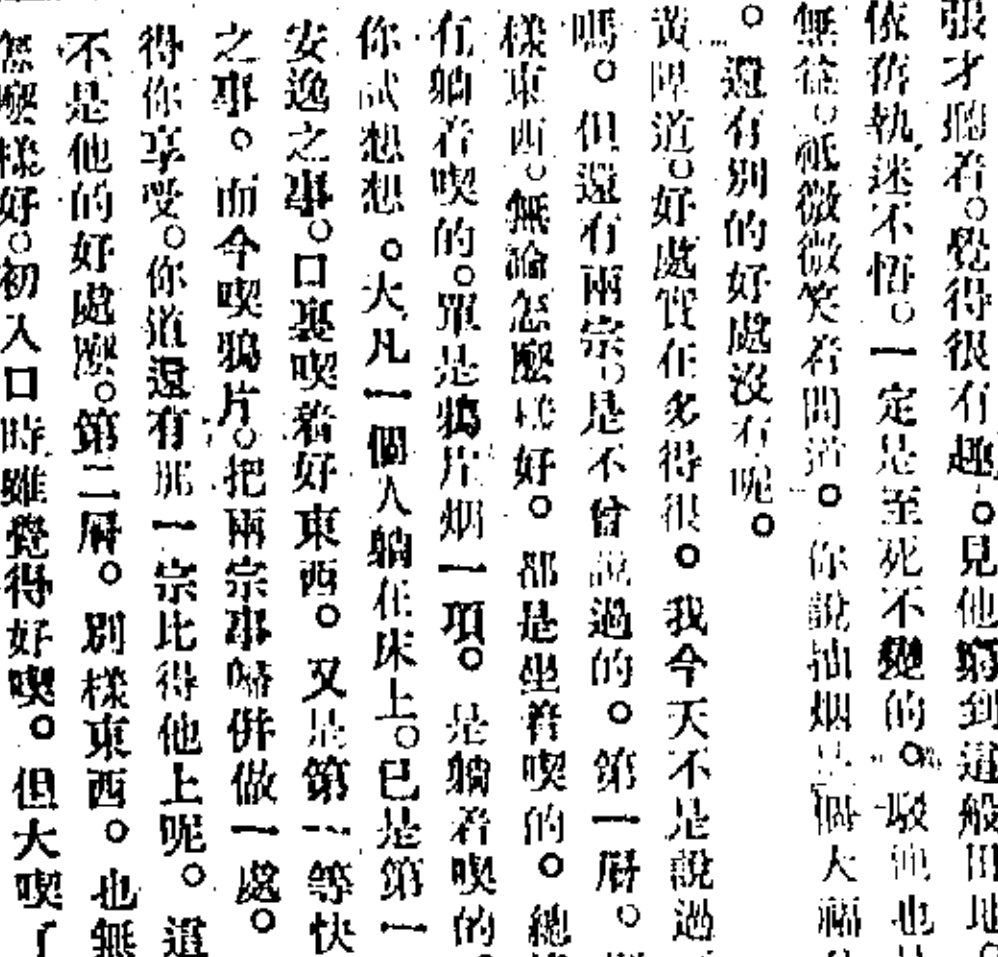 張才聽着。覺得很有趣。見他窮到這般田地。
依舊執迷不悟。一定是至死不變的。駁他也
無益。祗微微笑着問道。你說抽烟是個大福
。還有別的好處沒有呢。
黃陞道。好處實在多得很。我今天不是說過
嗎。但還有兩宗。是不曾說過的。第一層。
樣東西。無論怎麼樣好。都是坐着喫的。總
有躺着喫的。單是鴉片烟一項。是躺着喫的
你試想想。大凡一個人躺在床上。已是第一
安逸之事。口裏喫着好東西。又是第一等快
之事。而今喫鴉片。把兩宗事歸併做一處。
得你享受。你道還有那一宗比得他上呢。這
不是他的好處麼。第二層。別樣東西。也無
怎麼樣好。初入口時雖覺得好喫。但大喫了